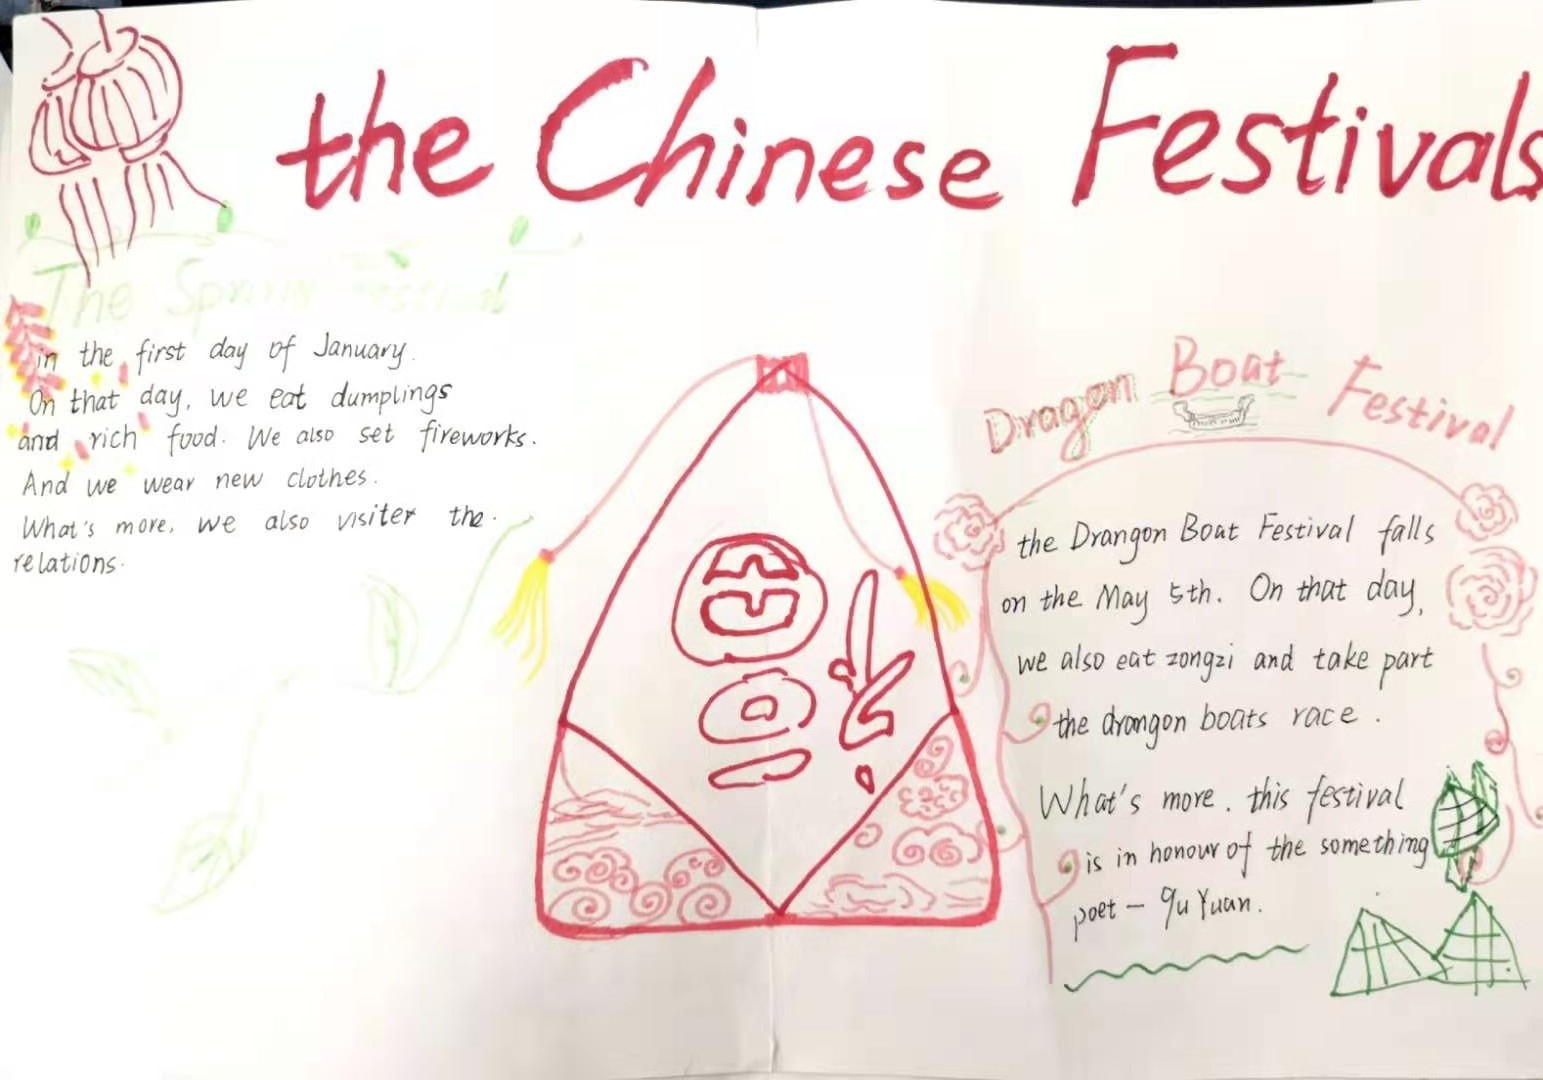 the Chinese Festivals
The Spring Festival
in the first day of January.
On that day, we eat dumplings
and rich food. We also set fireworks.
And we wear new clothes.
What's more, we also visiter the.
relations.
Dragon Boat Festival
the Drangon Boat Festival falls
on the May 5th. On that day,
we also eat zongzi and take part
the drangon boats race.
What's more. this festival
is in honour of the something
poet — Qu Yuan.